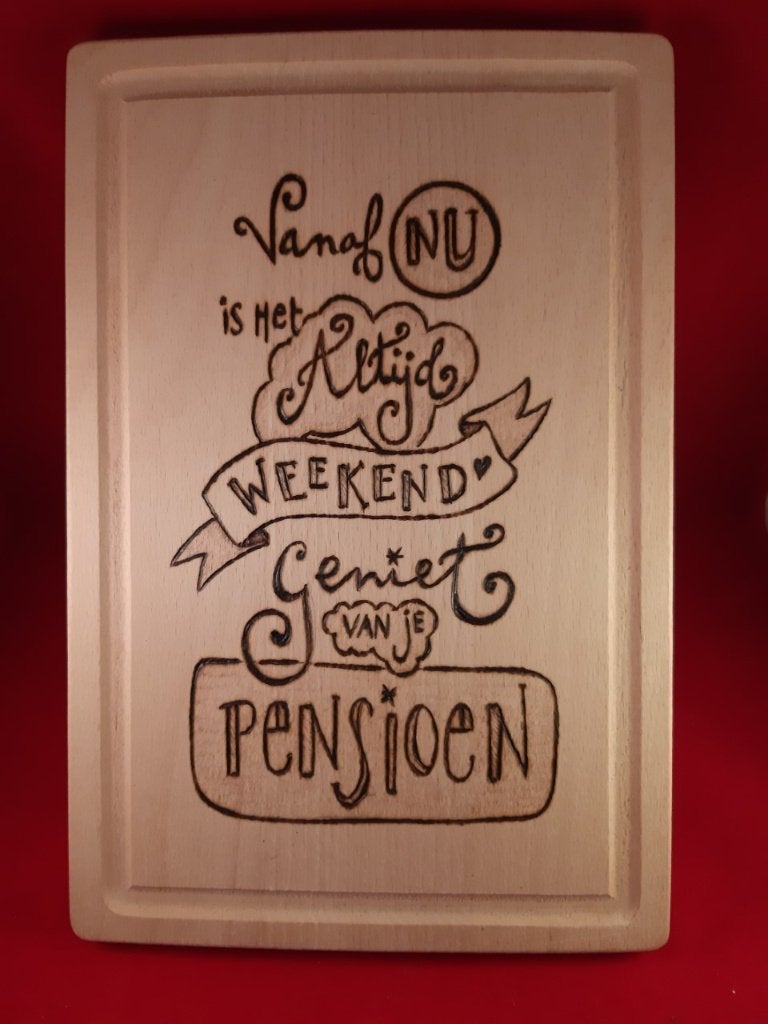 Vanaf NU
is Het
Altijd
WEEKEND
Geniet
VAN jE
PENSIOEN